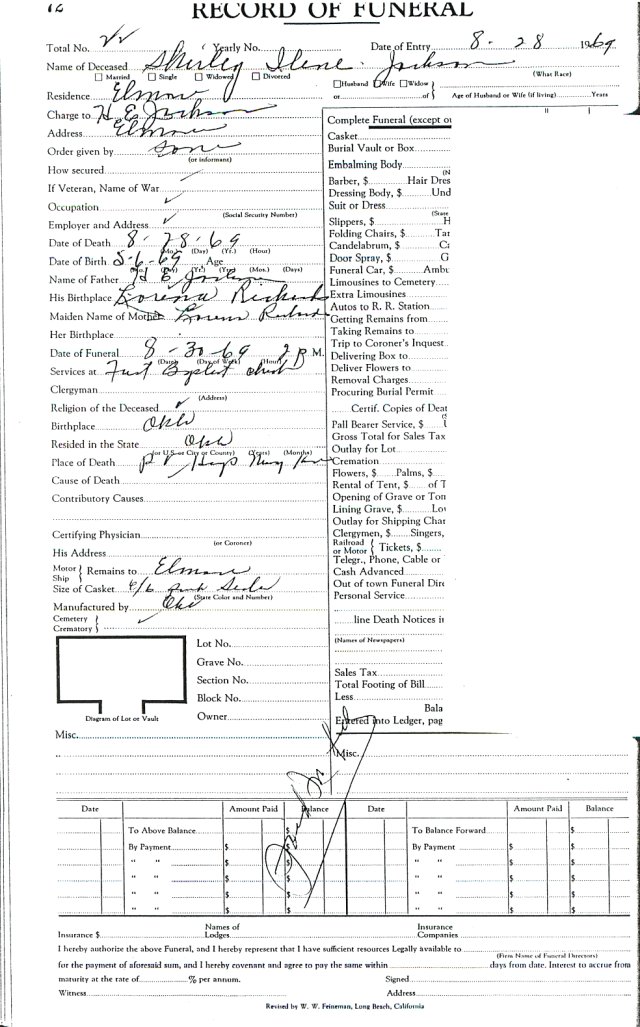 12
RECORD OF FUNERAL
Total No. Yearly No. Date of Entry 8 - 28 1969
Name of Deceased Shirley Ilene Jackson
(What Race)
Married Single Widowed Divorced
Husband Wife Widow
or of Age of Husband or Wife (if living) Years
Residence Elmore
Charge to H E Jackson
Address Elmore
Order given by same
(or informant)
How secured
If Veteran, Name of War
Occupation ✓
(Social Security Number)
Employer and Address ✓
Date of Death 8 - 28 - 69
(Mo.) (Day) (Yr.) (Hour)
Date of Birth 8-6-69 Age
(Mo.) (Day) (Yr.) (Yrs.) (Mos.) (Days)
Name of Father H E Jackson
His Birthplace Lorena
Maiden Name of Mother
Her Birthplace
Date of Funeral 8 - 30 - 69 2 P. M.
(Date) (Day of Week) (Hour)
Services at First Baptist church
Clergyman
(Address)
Religion of the Deceased ✓
Birthplace Okla
Resided in the State Okla
(or U.S. or City or County) (Years) (Months)
Place of Death P V
Cause of Death
Contributory Causes
Certifying Physician
(or Coroner)
His Address
Motor Ship Remains to Elmore
Size of Casket pink
(State Color and Number)
Manufactured by
Cemetery ✓
Crematory
Lot No.
Grave No.
Section No.
Block No.
Owner
Diagram of Lot or Vault
Misc.
Complete Funeral (except ou
Casket
Burial Vault or Box
Embalming Body
(N
Barber, $ Hair Dres
Dressing Body, $ Und
Suit or Dress
(State
Slippers, $ H
Folding Chairs, $ Tar
Candelabrum, $ Ca
Door Spray, $ G
Funeral Car, $ Ambu
Limousines to Cemetery
Extra Limousines
Autos to R. R. Station
Getting Remains from
Taking Remains to
Trip to Coroner's Inquest
Delivering Box to
Deliver Flowers to
Removal Charges
Procuring Burial Permit
Certif. Copies of Deat
Pall Bearer Service, $
Gross Total for Sales Tax
Outlay for Lot
Cremation
Flowers, $ Palms, $
Rental of Tent, $ of T
Opening of Grave or Tom
Lining Grave, $ Lov
Outlay for Shipping Char
Clergymen, $ Singers,
Railroad or Motor Tickets, $
Telegr., Phone, Cable or
Cash Advanced
Out of town Funeral Dire
Personal Service
line Death Notices in
(Names of Newspapers)
Sales Tax
Total Footing of Bill
Less
Bala
Entered into Ledger, pag
Misc.
Date Amount Paid Balance Date Amount Paid Balance
To Above Balance $ To Balance Forward $
By Payment $ $ By Payment $ $
" " $ $ " " $ $
" " $ $ " " $ $
" " $ $ " " $ $
" " $ $ " " $ $
Insurance $ Names of Lodges Insurance Companies
I hereby authorize the above Funeral, and I hereby represent that I have sufficient resources Legally available to
(Firm Name of Funeral Directors)
for the payment of aforesaid sum, and I hereby covenant and agree to pay the same within days from date. Interest to accrue from
maturity at the rate of % per annum. Signed
Witness Address
Revised by W. W. Feineman, Long Beach, California